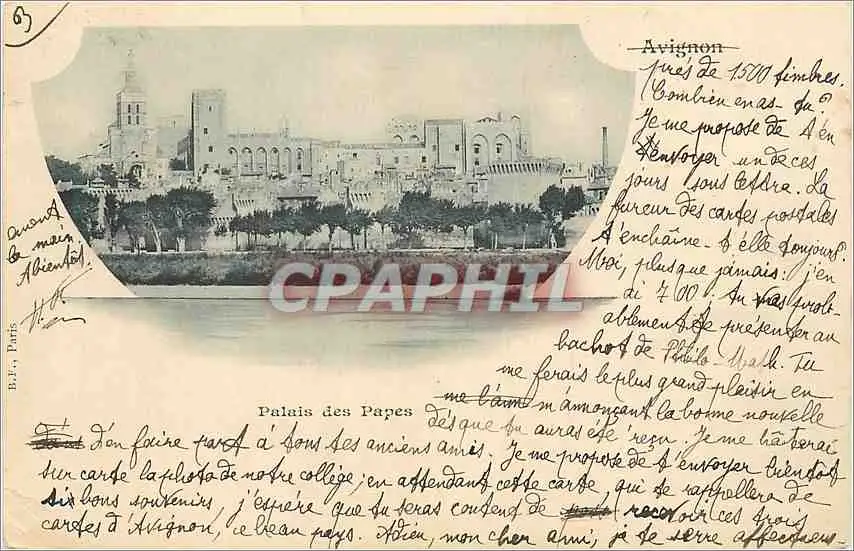 63
Avignon
près de 1500 timbres.
Combien en as-tu?
Je me propose de t'en
envoyer un de ces
jours sous lettra. La
fureur des cartes postales
t'enchaîne-t-elle toujours?
Moi, plus que jamais: j'en
ai 700. Tu vas prob-
ablement te présenter au
bachot de Philo-Math. Tu
me ferais le plus grand plaisir en
me l'ann m'annonçant la bonne nouvelle
dès que tu auras été reçu. Je me hâterai
d'en faire part à tous tes anciens amis. Je me propose de t'envoyer bientôt
sur carte la photo de notre collège; en attendant cette carte, qui te rappellera de
si bons souvenirs, j'espère que tu seras content de recevoir ces trois
cartes d'Avignon, ce beau pays. Adieu, mon cher ami, je te serre affectueus-
ement
la main
A bientôt
B.F., Paris
Palais des Papes
CPAPHIL